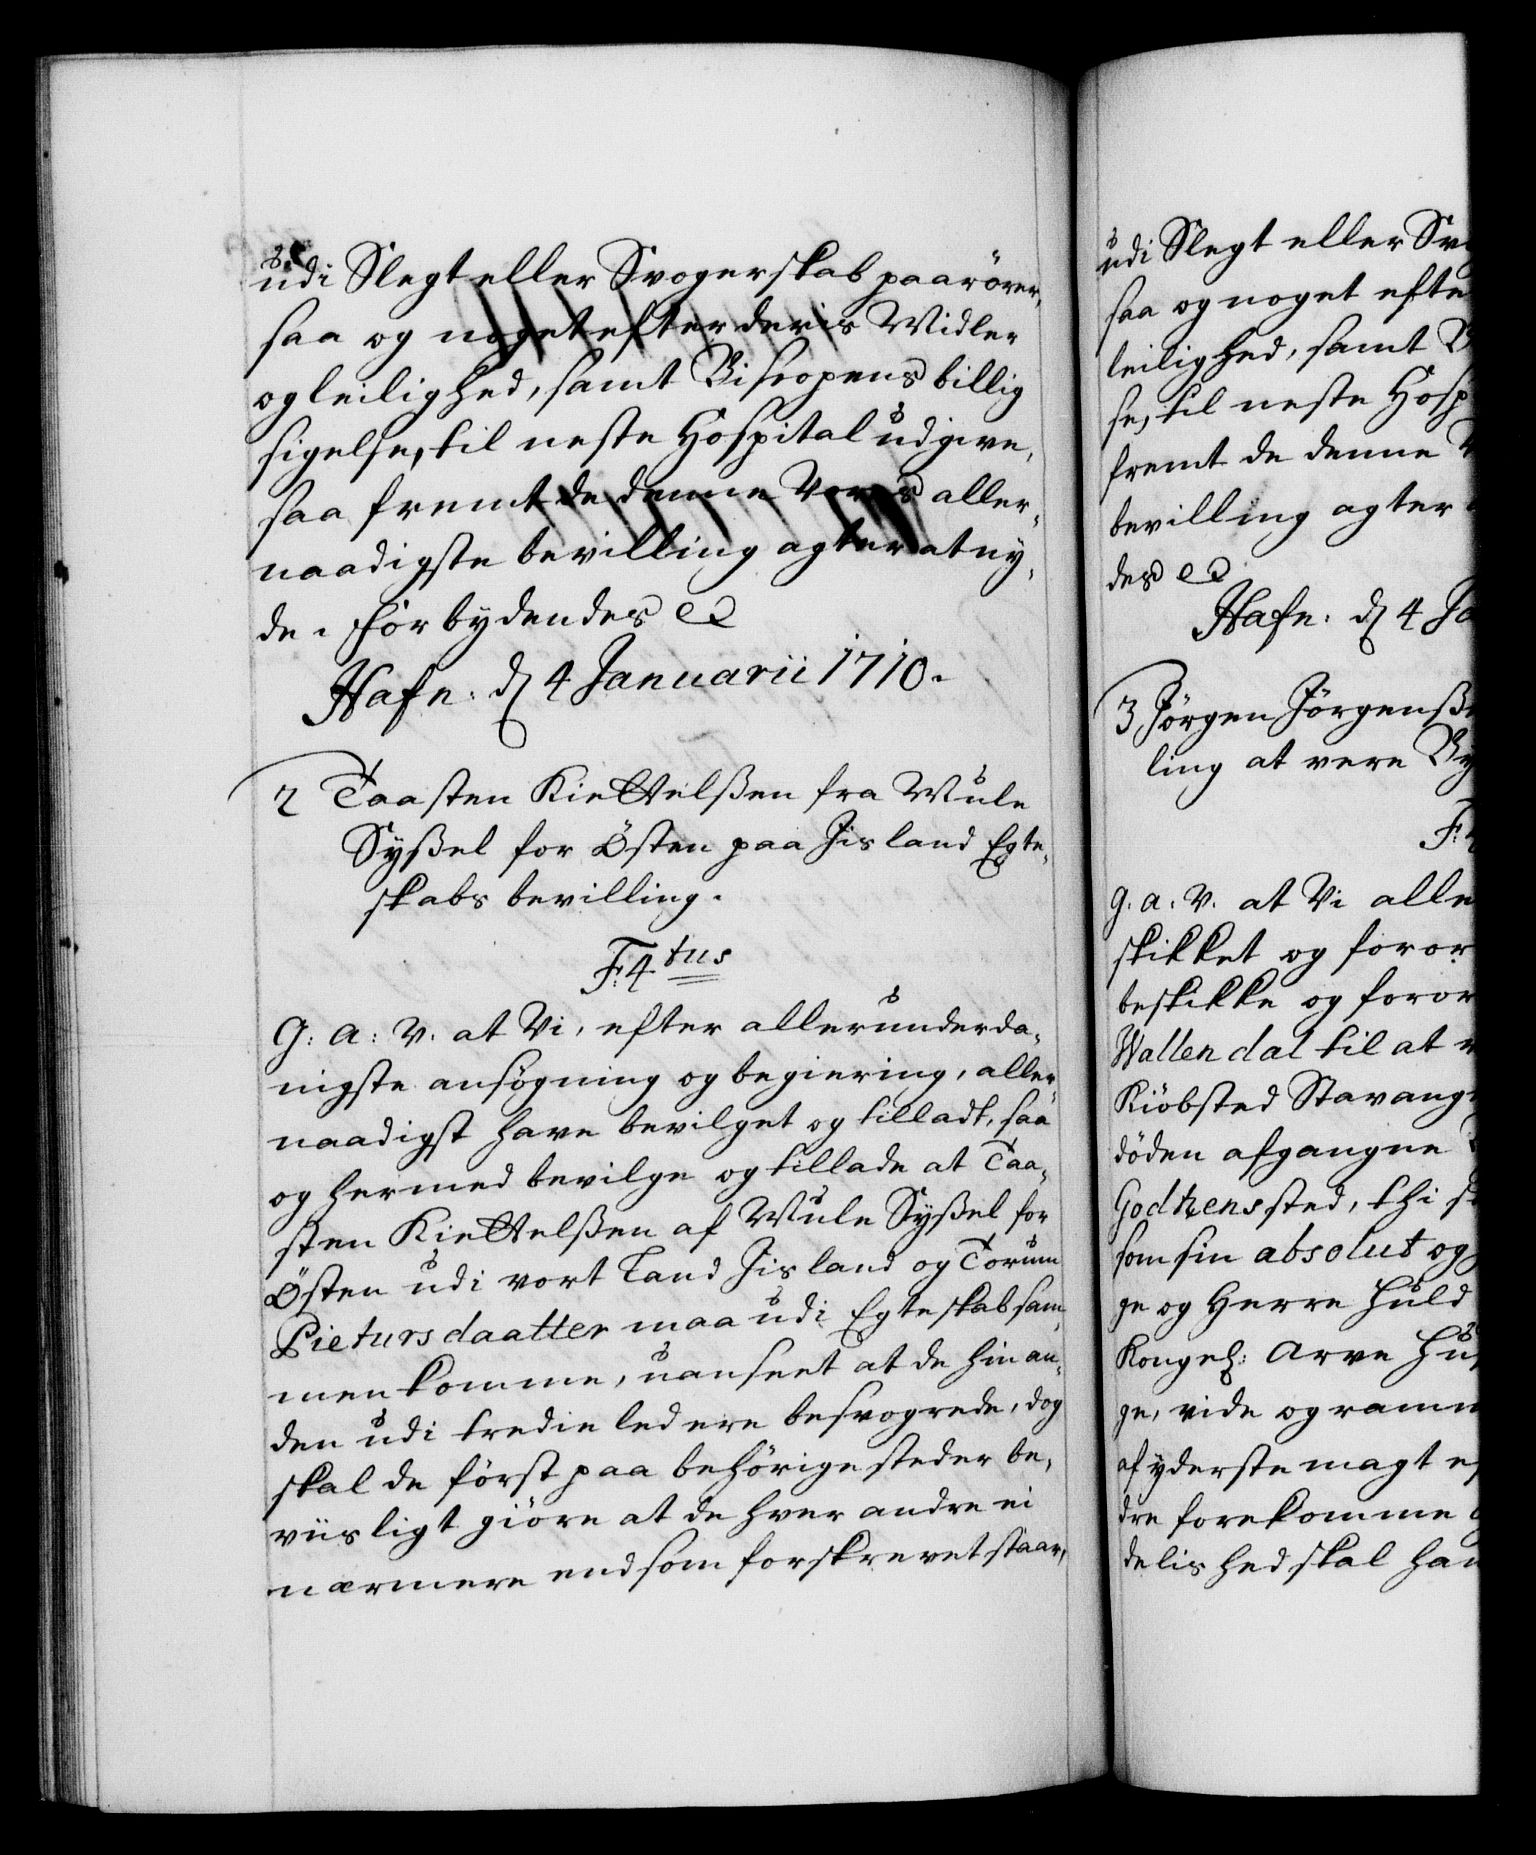 udi Slegt eller Svogerskab paarörer,
saa og noget efter deris Midler
og leilighed, samt Biscopens billig
sigelse, til neste Hospital udgive,
saa fremt de denne Vores aller,
naadigste bevilling agter at ny,
de. Forbydendes
Hafn: d 4 Januarii 1710.
2 Taasten Kiettelßen fra Mule
Syßel for Östen paa Jisland Egte,
skabs bevilling.
F: 4tus
G: A: V. at Vi, efter allerunderda,
nigste ansögning og begiering, aller,
naadigst have bevilget og tilladt, saa
og hermed bevilge og tillade at Taa,
sten Kiettelßen af Mule Syßel for
Östen udi vort Land Jisland og Torun
Pieturs daatter maa udi Egteskab sam,
men komme, uanseet at de hinan,
den udi tredie led ere besvogrede, dog
skal de först paa behörige steder be,
viisligt giöre at de hver andre ei
nærmere end som forskrevet staar,
udi Slegt eller Svo
saa og noget efte
leilighed, samt B
se, til neste Hosp
fremt de denne V
bevilling agter
des
Hafn: d 4 Ja
3 Jörgen Jörgenß
ling at vere By
F: 4
G. A. V. at Vi alle
skikket og foror
beskikke og foror
Wallendal til at v
Kiöbsted Stavang
döden afgangne
Godtzensted, thi s
som sin absolut og
ge og Herre huld
Kongel: Arve Hu
ge, vide og ramm
af yderste magt e
dre forekomme
delished skal han